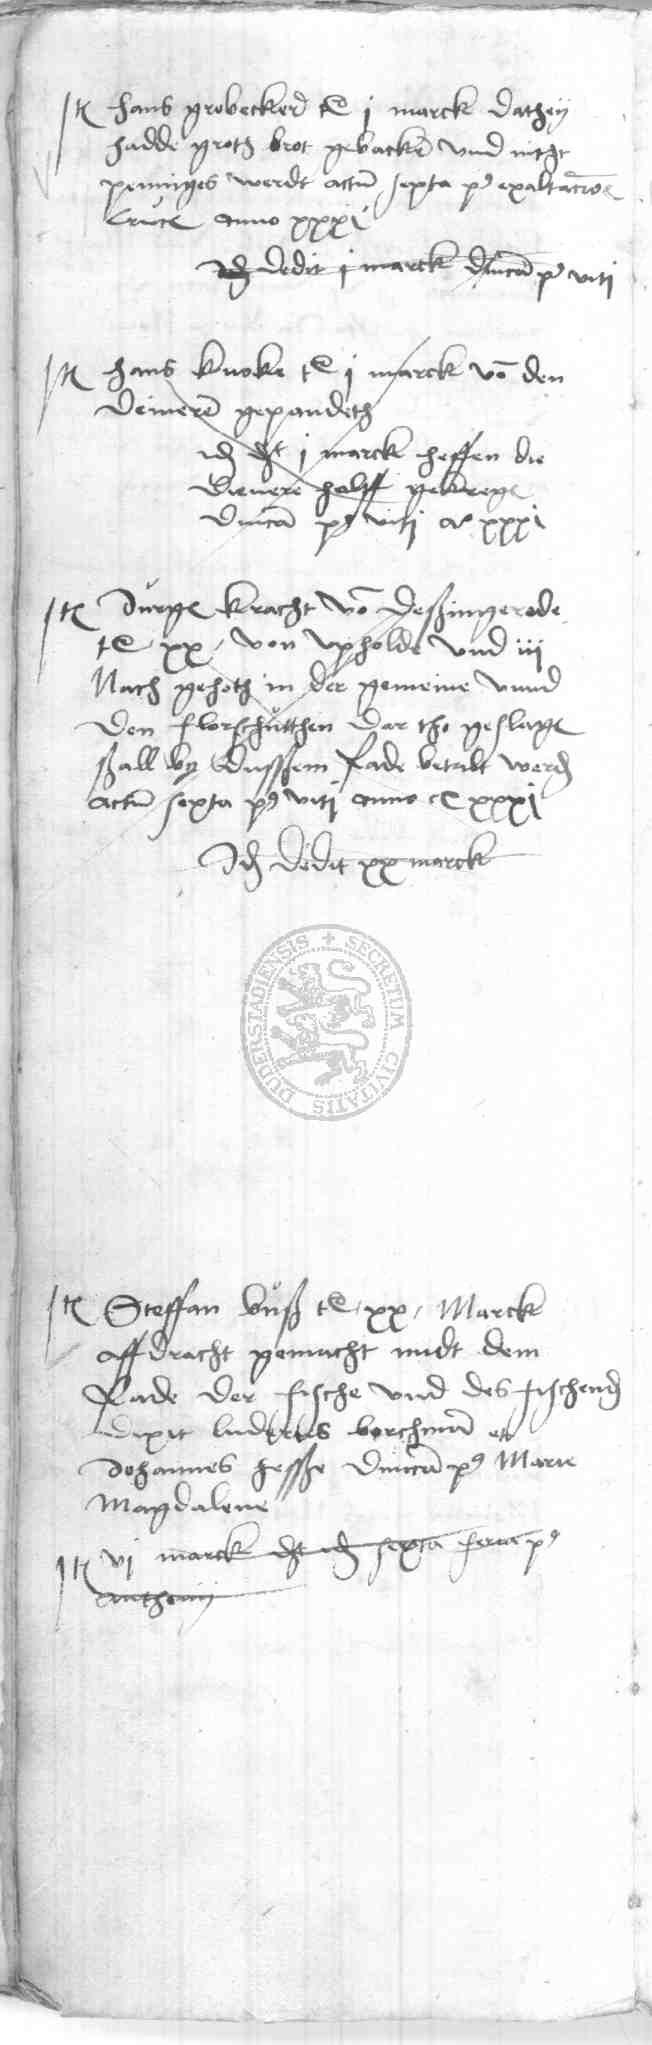 It Hans grobecker tz j marck dat hey
hadde groth brot gebacken und nicht
penninges werdt actum sexta p exaltacionis
Crucis anno xxxj
Id dedit j marck dnica p viti
It Hans knoke tz j marck vo den
deineren gepandeth
id dt j marck heffen die
dienere halff gekrege
dnica p viti a xxxj
It Jurge kracht vo desingerode
tz xx von upholde und iij
Nach gehoth in der gemeine unnd
den florschutthen dar tho geslage
sall by dussem Rade betalt werd
actum sexta p viti anno xxxj
Id dedit xx marck
SECRETUM CIVITATIS DUDERSTADIENSIS
It Steffan buß tz xx Marck
affdracht gemacht midt dem
Rade der fische und des fischend
dixit borchman et
Johannes hesse dnica p Marie
Magdalene
It vj marck dt id sexta feria p
anthonij